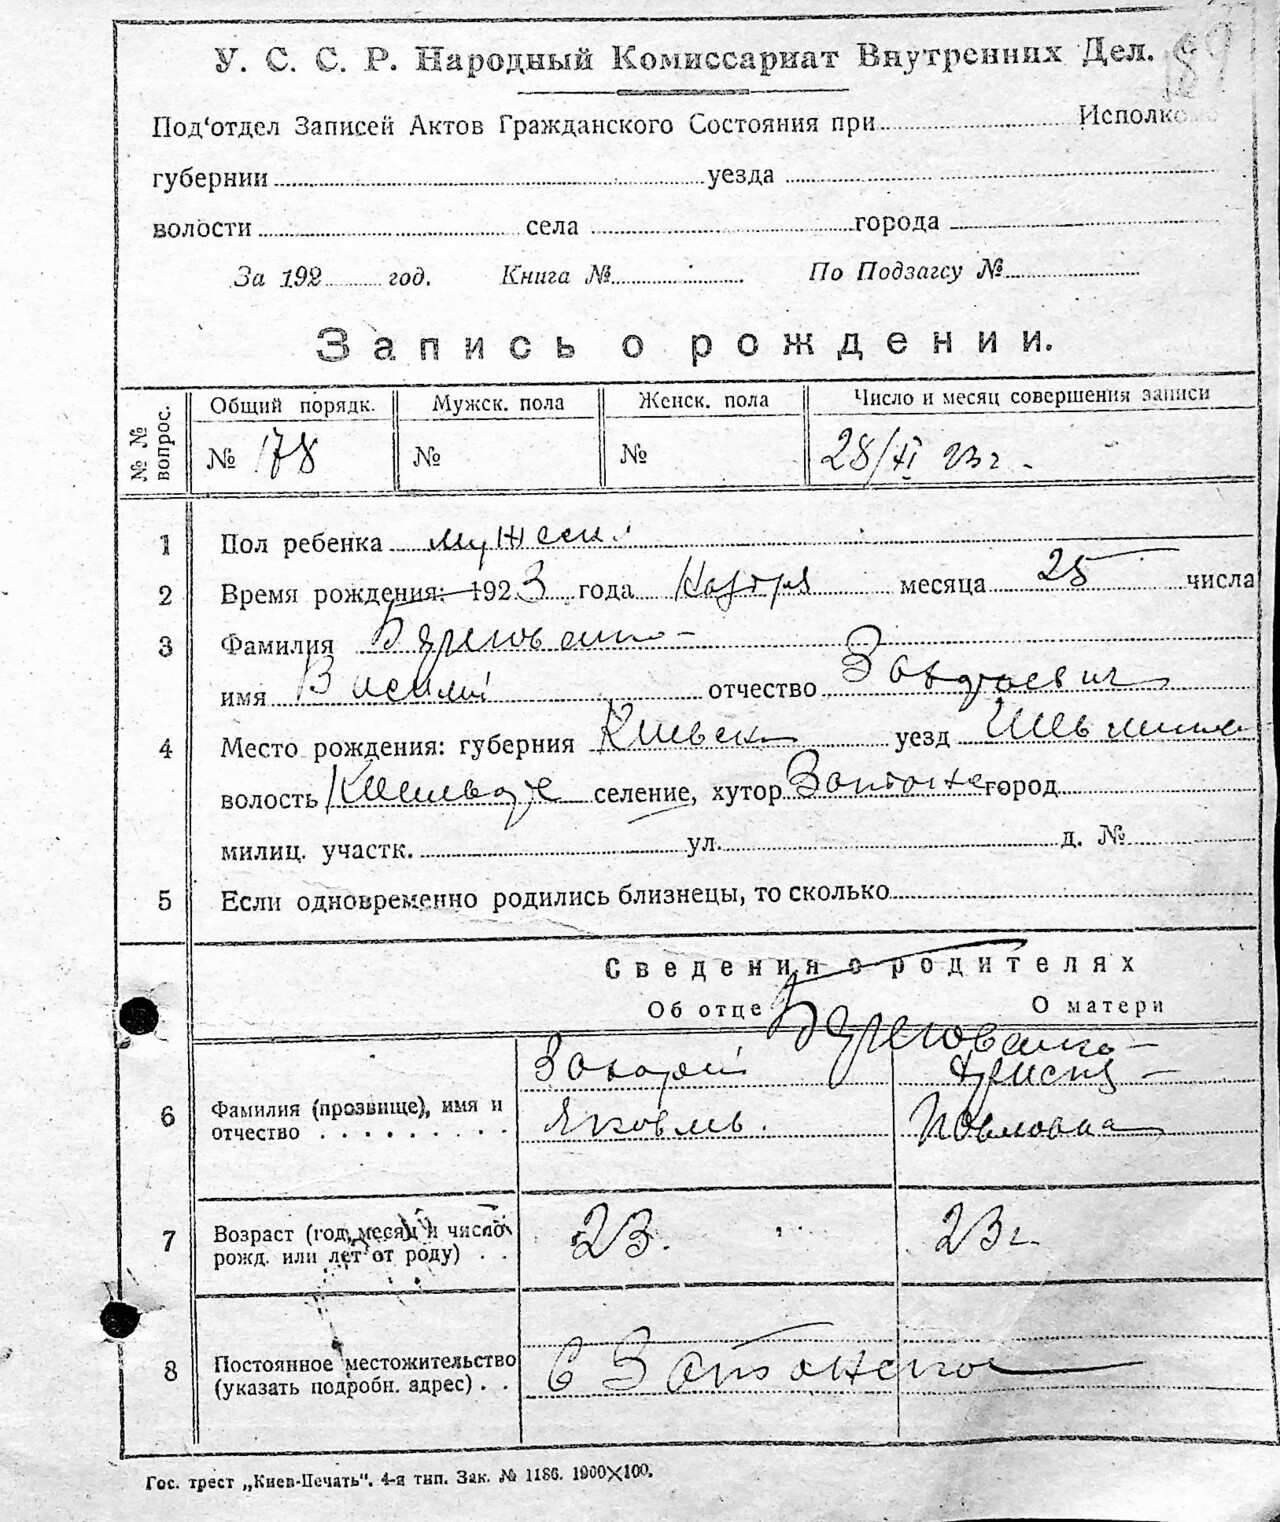 189
У. С. С. Р. Народный Комиссариат Внутренних Дел.
Под‘отдел Записей Актов Гражданского Состояния при Исполко
губернии уезда
волости села города
За 192 год. Книга № По Подзагсу №
Запись о рождении.
№ № вопрос. Общий порядк. Мужск. пола Женск. пола Число и месяц совершения записи
№ 178 № № 28/XI 23 г.
1 Пол ребенка мужеск.
2 Время рождения: 1923 года Ноября месяца 25 числа
3 Фамилия
имя Василий отчество Захарьевич
4 Место рождения: губерния Киевск уезд
волость селение, хутор город
милиц. участк. ул. д. №
5 Если одновременно родились близнецы, то сколько
Сведения о родителях
Об отце О матери
Захарий
6 Фамилия (прозвище), имя и
отчество Яковлв. Павловна
7 Возраст (год, месяц и число
рожд. или лет от роду) 23. 23 г.
8 Постоянное местожительство
(указать подробн. адрес) с
Гос. трест „Киев-Печать“. 4-я тип. Зак. № 1186. 1900×100.